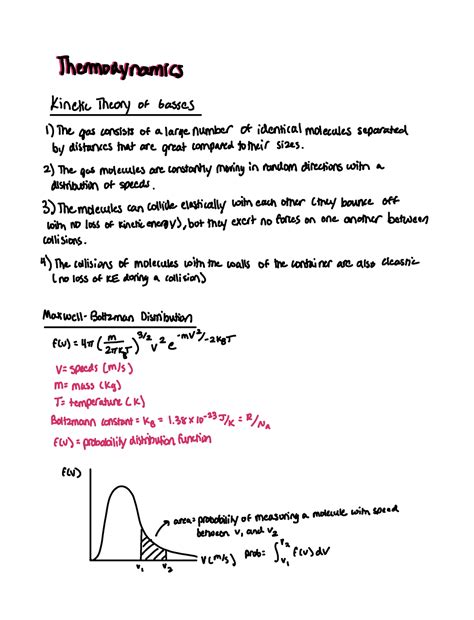 Thermodynamics
Kinetic Theory of gasses
1) The gas consists of a large number of identical molecules separated
by distances that are great compared to their sizes.
2) The gas molecules are constantly moving in random directions with a
distribution of speeds.
3) The molecules can collide elastically with each other (they bounce off
with no loss of kinetic energy), but they exert no forces on one another between
collisions.
4) The collisions of molecules with the walls of the container are also elastic
(no loss of KE during a collision)
Maxwell-Boltzman Distribution
f(v) = 4π (m/2πk_BT)^3/2 v^2 e^-mv^2/-2k_BT
V = speeds (m/s)
m = mass (kg)
T = temperature (K)
Boltzmann constant = k_B = 1.38 × 10^-23 J/K = R/N_A
f(v) = probability distribution function
f(v)
area = probability of measuring a molecule with speed
between v_1 and v_2
V(m/s) prob = ∫_v_1^v_2 f(v) dv
v_1 v_2